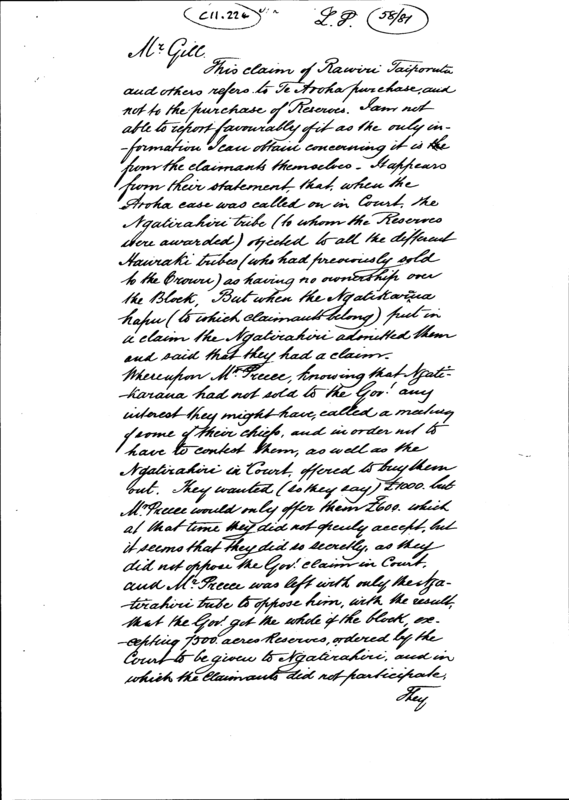 C11.224
L.P. 58/81
Mr Gill
This claim of Rawiri Taiporutu
and others refers to Te Aroha purchase, and
not to the purchase of Reserves. I am not
able to report favourably of it as the only in-
-formation I can obtain concerning it is the
from the claimants themselves - It appears
from their statement, that, when the
Aroha case was called on in Court, the
Ngatirahiri tribe (to whom the Reserves
were awarded) objected to all the different
Hauraki tribes (who had previously sold
to the Crown) as having no ownership over
the Block, But when the Ngatikaraua
hapu (to which claimants belong) put in
a claim the Ngatirahiri admitted them
and said that they had a claim.
Whereupon Mr Preece, knowing that Ngati-
-karaua had not sold to the Govt any
interest they might have, called a meeting
of some of their chiefs, and in order not to
have to contest them, as well as the
Ngatirahiri in Court, offered to buy them
out. They wanted (so they say) £1000. but
Mr Preece would only offer them £600. which
at that time they did not openly accept, but
it seems that they did so secretly, as they
did not oppose the Govt claim in Court,
and Mr Preece was left with only the Nga-
-tirahiri tribe to oppose him, with the result,
that the Govt got the whole of the block, ex-
-cepting 7500 acres Reserves, ordered by the
Court to be given to Ngatirahiri, and in
which the claimants did not participate,
They